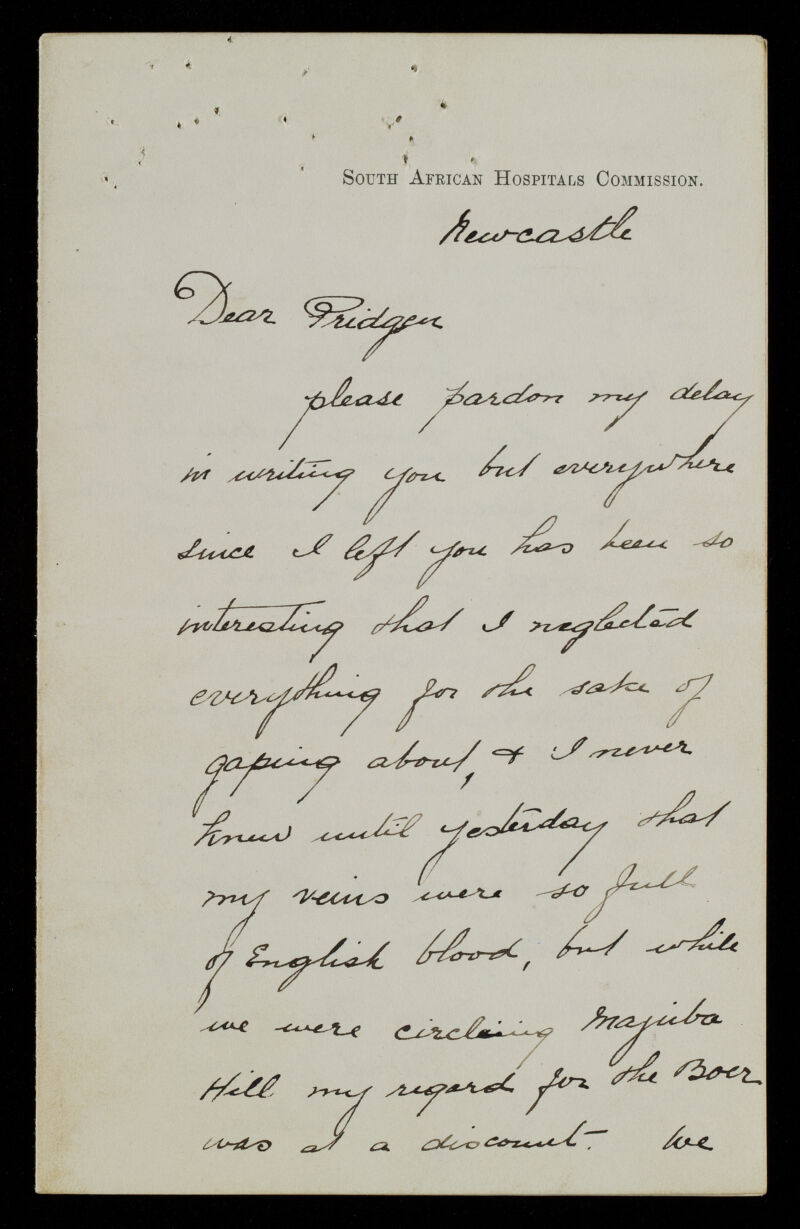 South African Hospitals Commission.
Newcastle
Dear Pridgen
please pardon my delay
in writing you but everywhere
since I left you has been so
interesting that I neglected
everything for the sake of
gaping about, & I never
knew until yesterday that
my veins were so full
of English blood, but while
we were circling Majuba
Hill my regard for the Boer
was at a discount. We